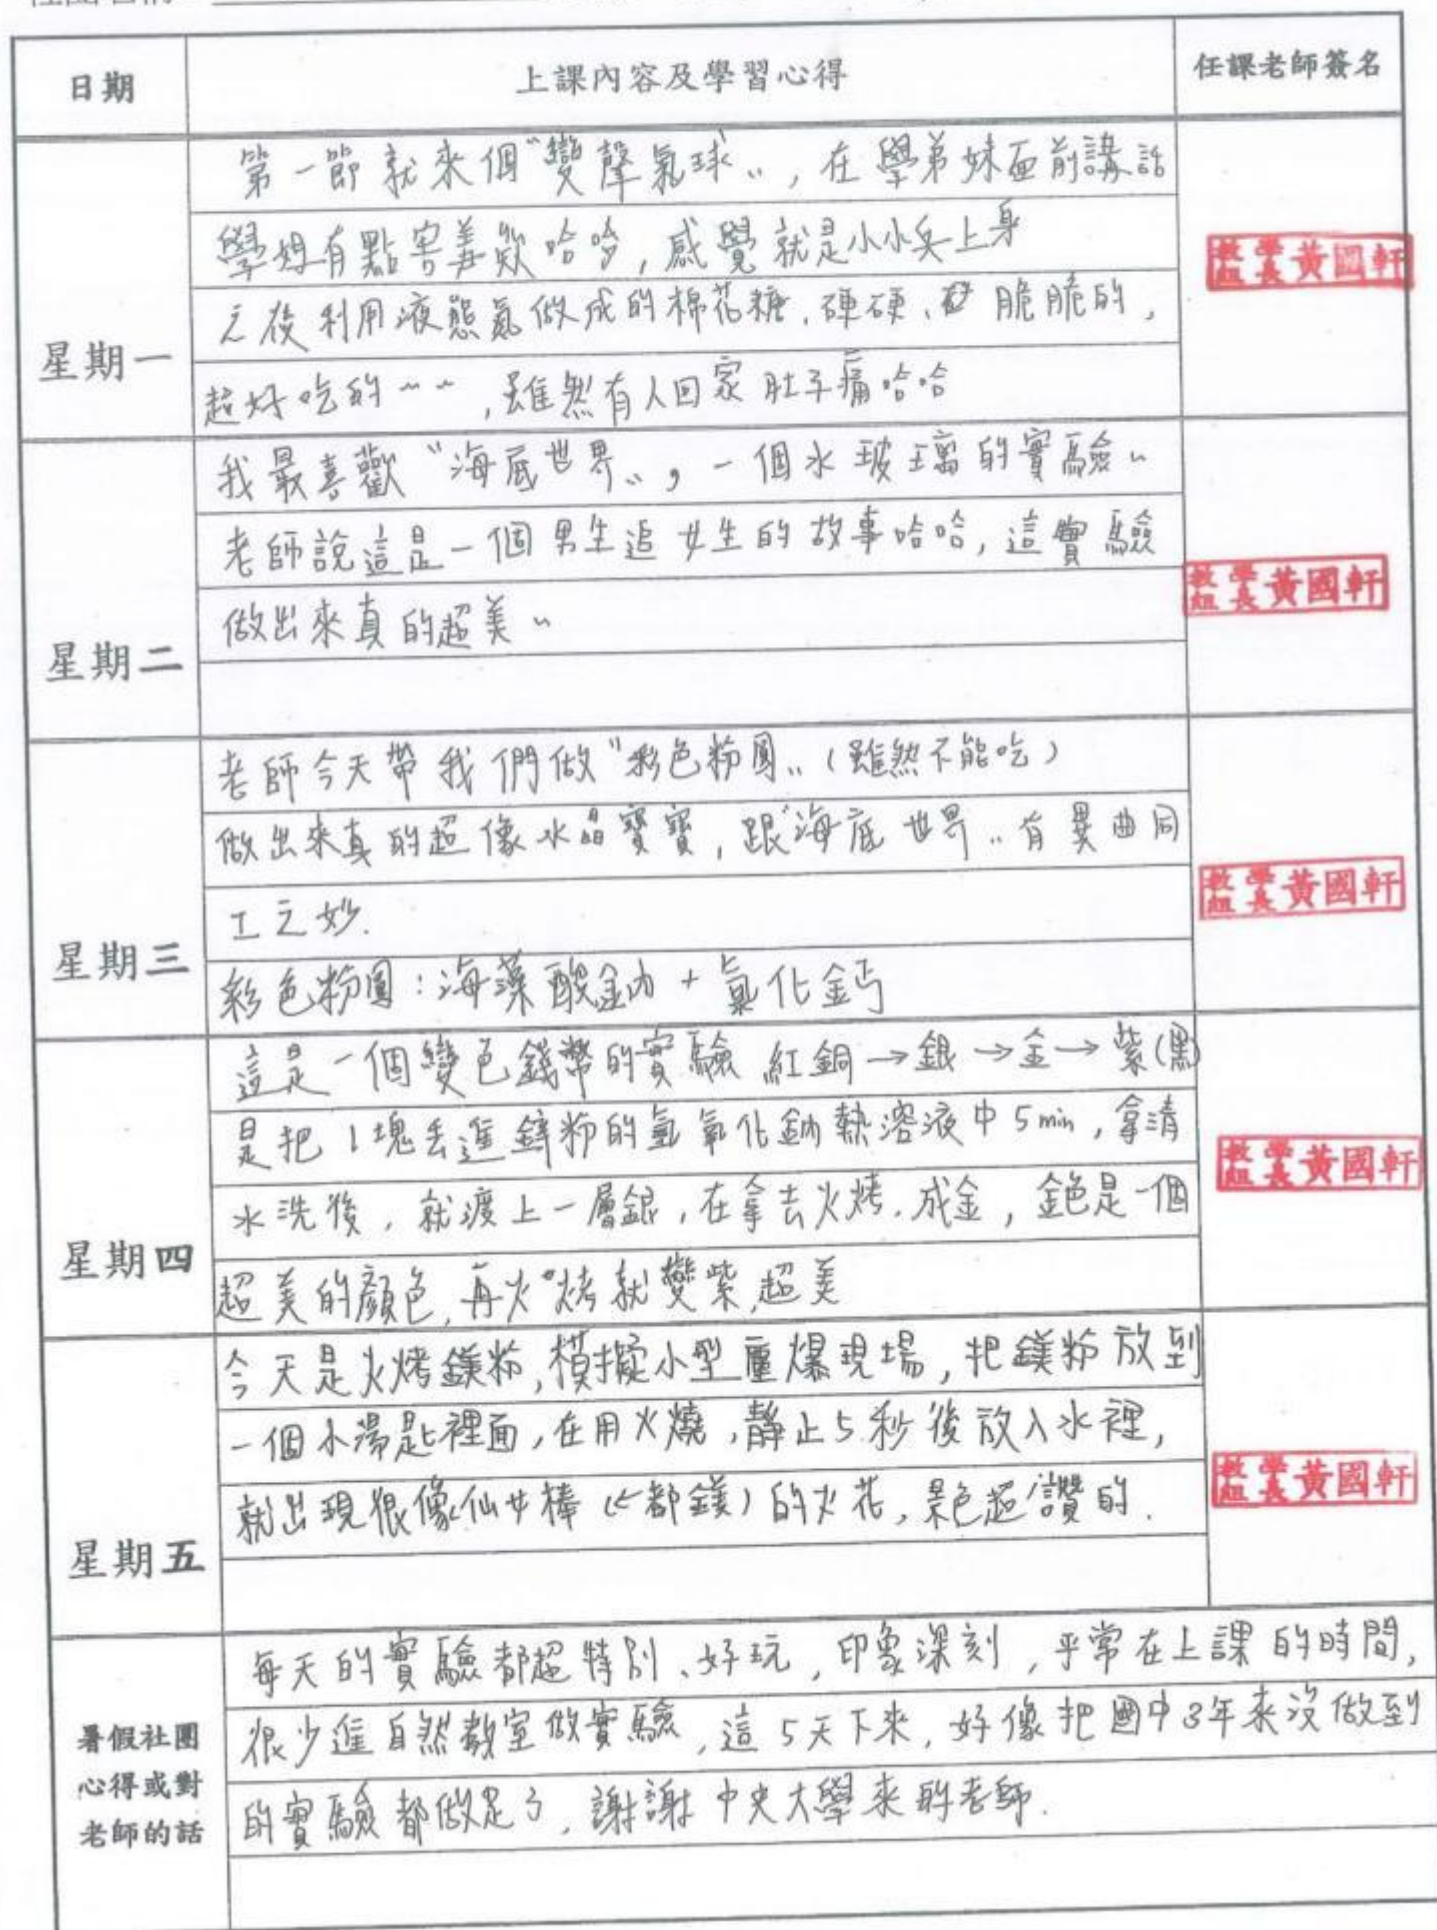 日期
上課內容及學習心得
任課老師簽名
星期一
第一節就來個“變聲氣球〃，在學弟妹面前講話
學姐有點害羞欸哈哈，感覺就是小小兵上身
之後利用液態氮做成的棉花糖，硬硬、脆脆的，
超好吃的~~，雖然有人回家肚子痛哈哈
教學組長黃國軒
星期二
我最喜歡“海底世界〃，一個水玻璃的實驗~
老師說這是一個男生追女生的故事哈哈，這實驗
做出來真的超美~
教學組長黃國軒
星期三
老師今天帶我們做“彩色粉圓〃（雖然不能吃）
做出來真的超像水晶寶寶，跟“海底世界〃有異曲同
工之妙.
彩色粉圓：海藻酸鈉 + 氯化鈣
教學組長黃國軒
星期四
這是一個變色錢幣的實驗 紅銅→銀→金→紫(黑)
是把1塊丟進鋅粉的氫氧化鈉熱溶液中5min，拿清
水洗後，就渡上一層銀，在拿去火烤，成金，金色是一個
超美的顏色，再火烤就變紫，超美
教學組長黃國軒
星期五
今天是火烤鎂粉，模擬小型塵爆現場，把鎂粉放到
一個小湯匙裡面，在用火燒，靜止5秒後放入水裡，
就出現很像仙女棒（←都鎂）的火花，景色超讚的.
教學組長黃國軒
暑假社團
心得或對
老師的話
每天的實驗都超特別、好玩，印象深刻，平常在上課的時間，
很少進自然教室做實驗，這5天下來，好像把國中3年來沒做到
的實驗都做足了，謝謝中央大學來的老師.